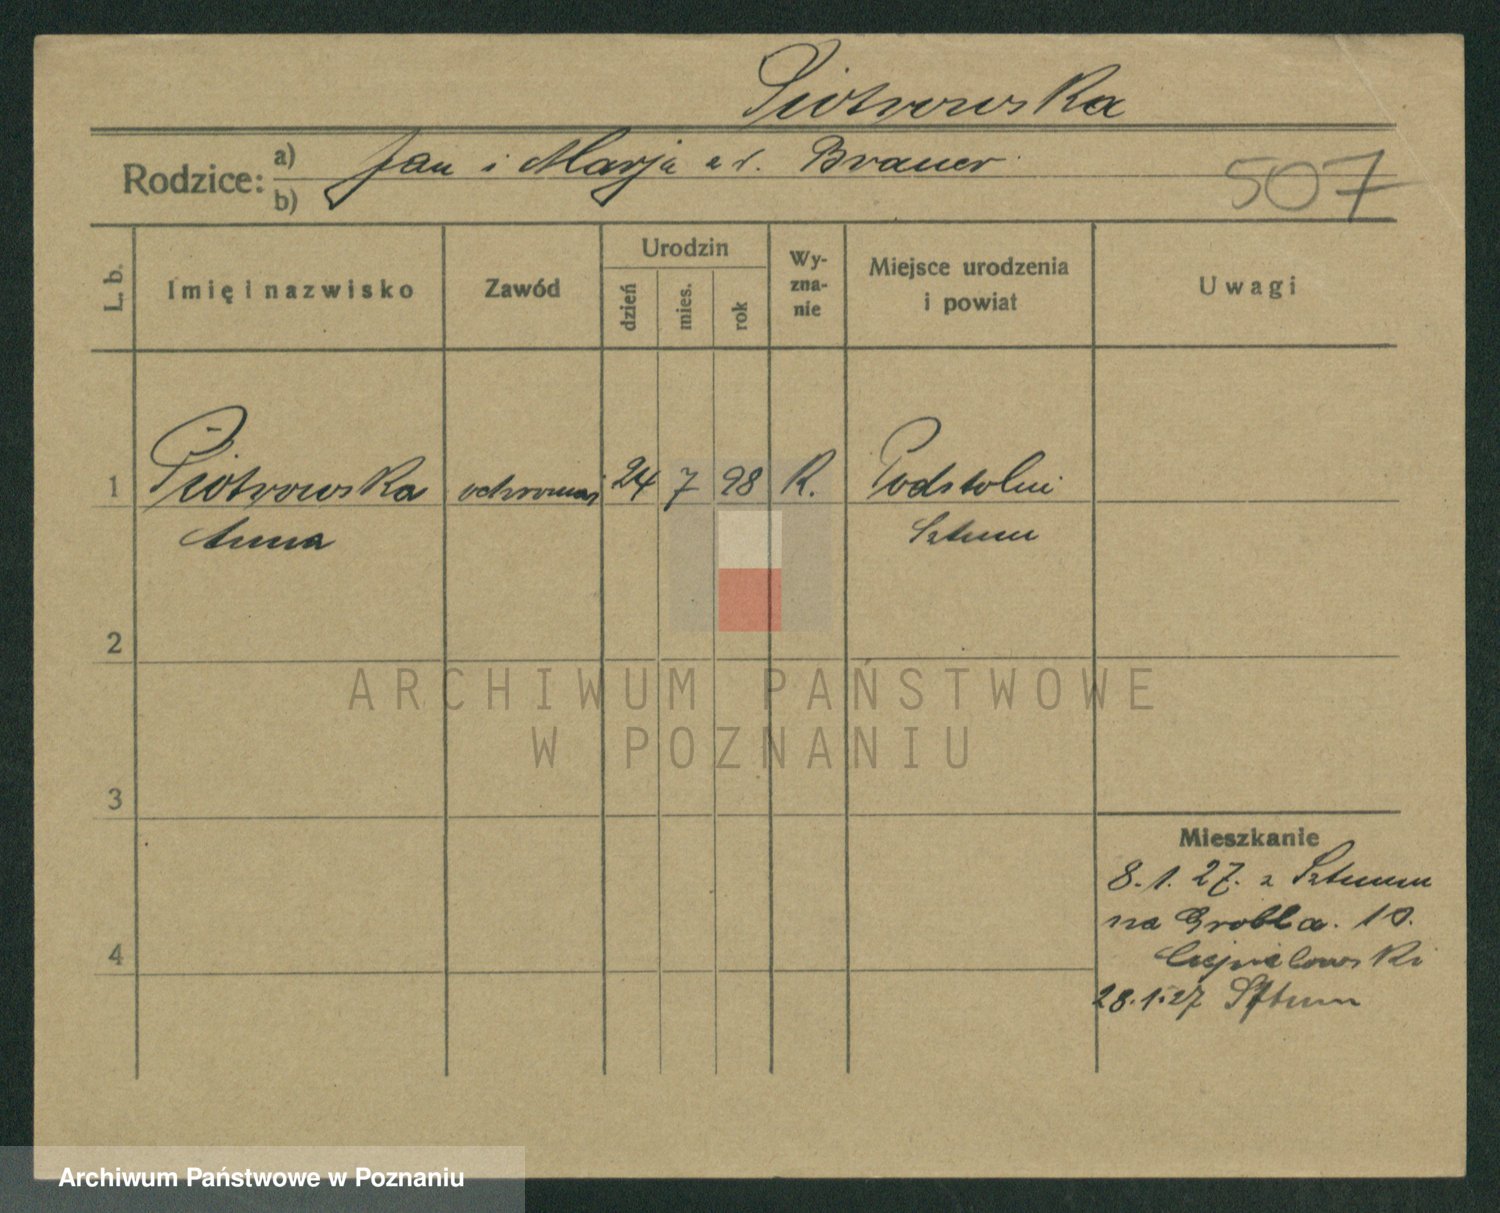 Piotrowska
Rodzice: a) Jan i Marja z d. Brauer
b)
507
L. b. Imię i nazwisko Zawód Urodzin dzień mies. rok Wy-zna-nie Miejsce urodzenia i powiat Uwagi
1 Piotrowska 24 7 98 R. Podstolni
Anna Sztum
2
ARCHIWUM PAŃSTWOWE
W POZNANIU
3
Mieszkanie
8.1.27. z Sztumu
na Grobla. 10.
4
28.1.27 Sztum
Archiwum Państwowe w Poznaniu